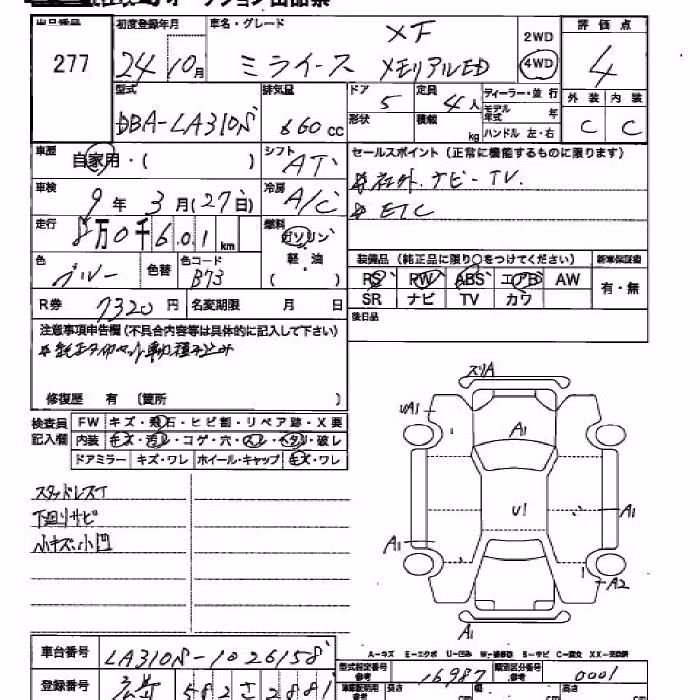 出品番号 初度登録年月 車名・グレード 評価点
277 24 10月 ミライース XF メモリアルED 2WD 4WD 4
型式 排気量 ドア 定員 ディーラー・並行 外装 内装
DBA-LA310S 660cc 5 4人 モデル年式 年 C C
形状 積載 kg ハンドル 左・右
車歴 自家用・( ) シフト AT セールスポイント(正常に機能するものに限ります)
車検 9年3月(27日) 冷房 A/C 社外.ナビ-TV.
ETC
走行 8万0千601km 燃料 ガソリン 軽油 ( )
装備品(純正品に限り○をつけてください) 新車保証書
色 ブルー 色替 色コード B73
PS PW ABS エアB AW 有・無
SR ナビ TV カワ
R券 7320円 名変期限 月 日
後日品
注意事項申告欄(不具合内容等は具体的に記入して下さい)
修復歴 有 〔箇所 〕
検査員記入欄 FW キズ・飛石・ヒビ割・リペア跡・X要
内装 キズ・汚レ・コゲ・穴・スレ・ヘタリ・破レ
ドアミラー キズ・ワレ ホイール・キャップ キズ・ワレ
スタッドレスT
下廻りサビ
小キズ.小凹
スリA
UA1
A1
U1
A1
A1
A2
A1
A-キズ E-エクボ U-凹み W-補修跡 S-サビ C-腐食 XX-交換済
車台番号 LA310S-1026158
型式指定番号 参考 16987 類別区分番号 参考 0001
登録番号 582 さ 2881
長さ cm 幅 cm 高さ cm